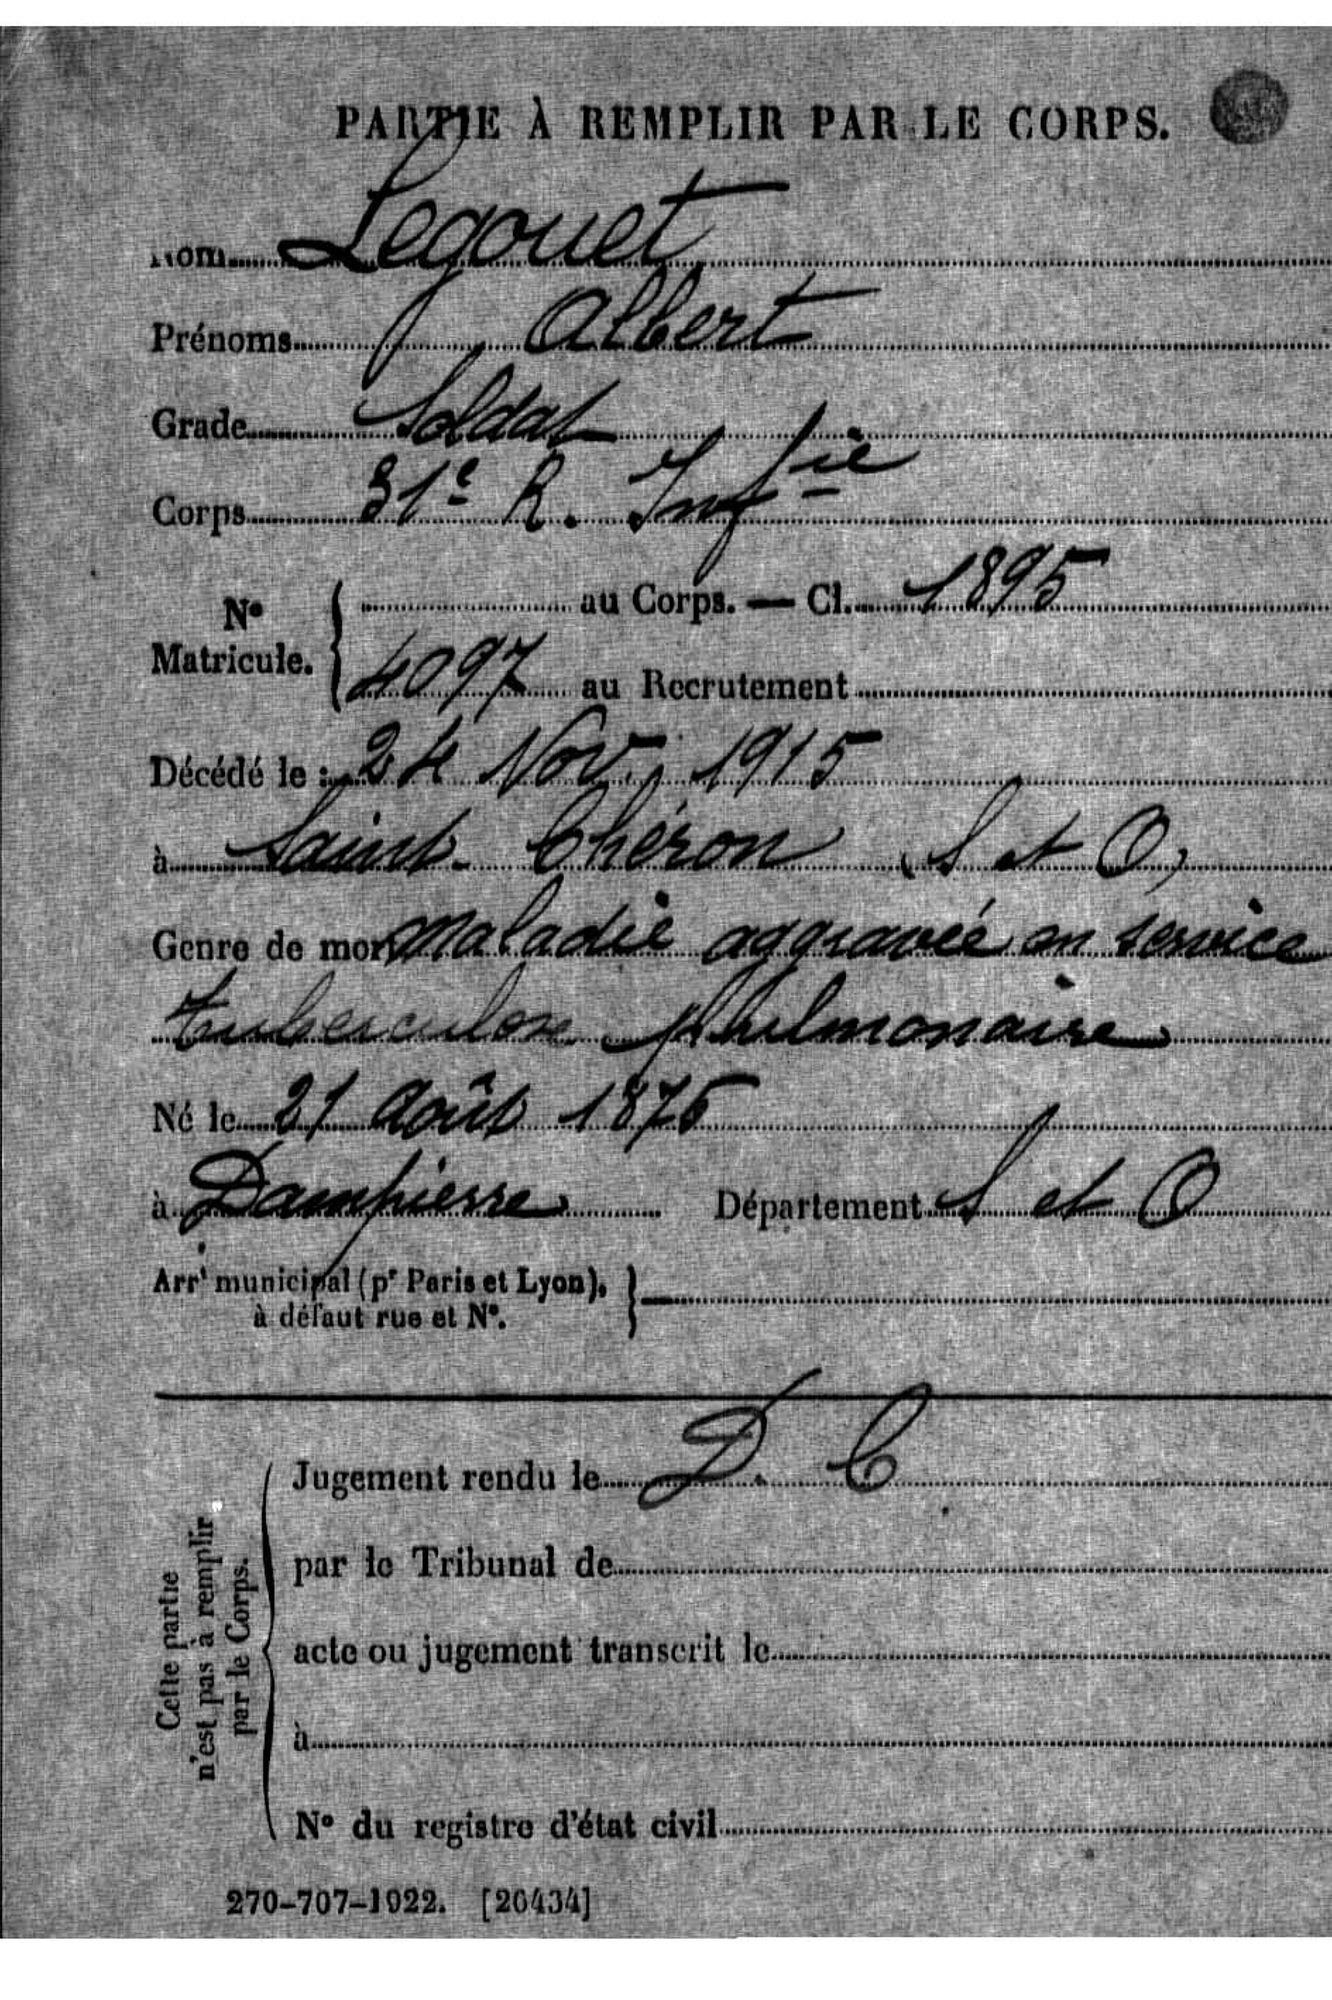 PARTIE À REMPLIR PAR LE CORPS.
Nom Legouet
Prénoms Albert
Grade Soldat
Corps 31e R. Infie
No Matricule. au Corps. — Cl. 1895
4097 au Recrutement
Décédé le : 24 Nov. 1915
à Saint-Chéron (S et O)
Genre de mort Maladie aggravée en service
tuberculose pulmonaire
Né le 21 Août 1875
à Dampierre Département S et O
Arrt municipal (pr Paris et Lyon), à défaut rue et No. —
Jugement rendu le D. C
par le Tribunal de
acte ou jugement transcrit le
à
No du registre d'état civil
Cette partie n'est pas à remplir par le Corps.
270-707-1922. [26434]